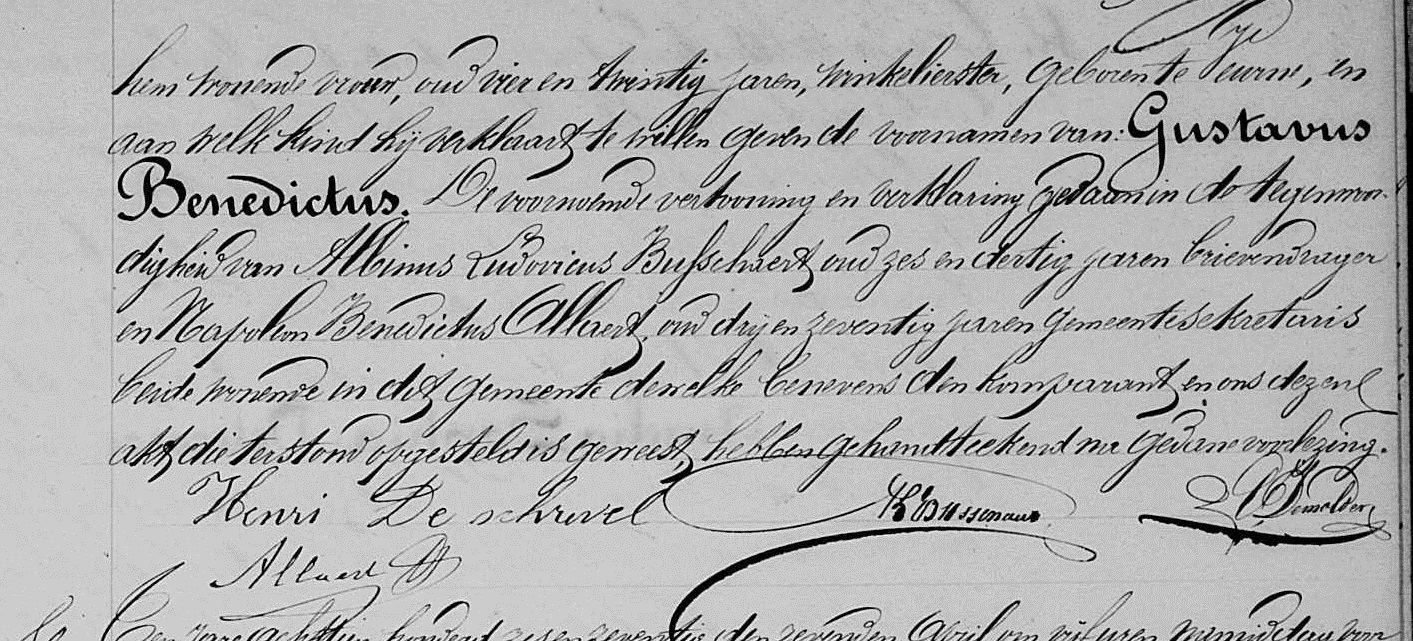 hem wonende vrouw, oud vier en twintig jaren, winkelierster, geboren te Eurne, en
aan welk kind hij verklaart te willen geven de voornamen van: Gustavus
Benedictus. De voornoemde vertooning en verklaring gedaan in de tegenwoor-
digheid van Albinus Ludovicus Busschaert, oud zes en dertig jaren brievendrager
en Napoleon Benedictus Allaert, oud drij en zeventig jaren gemeentesekretaris
beide wonende in dit gemeente dewelke benevens den komparant en ons dezen
akt, die terstond opgesteld is geweest, hebben gehandteekend na gedane voorlezing.
Henri De schrevel Demolder
Allaert
Een jaer achttien honderd zes en zeventig den zevenden April om vijf uren